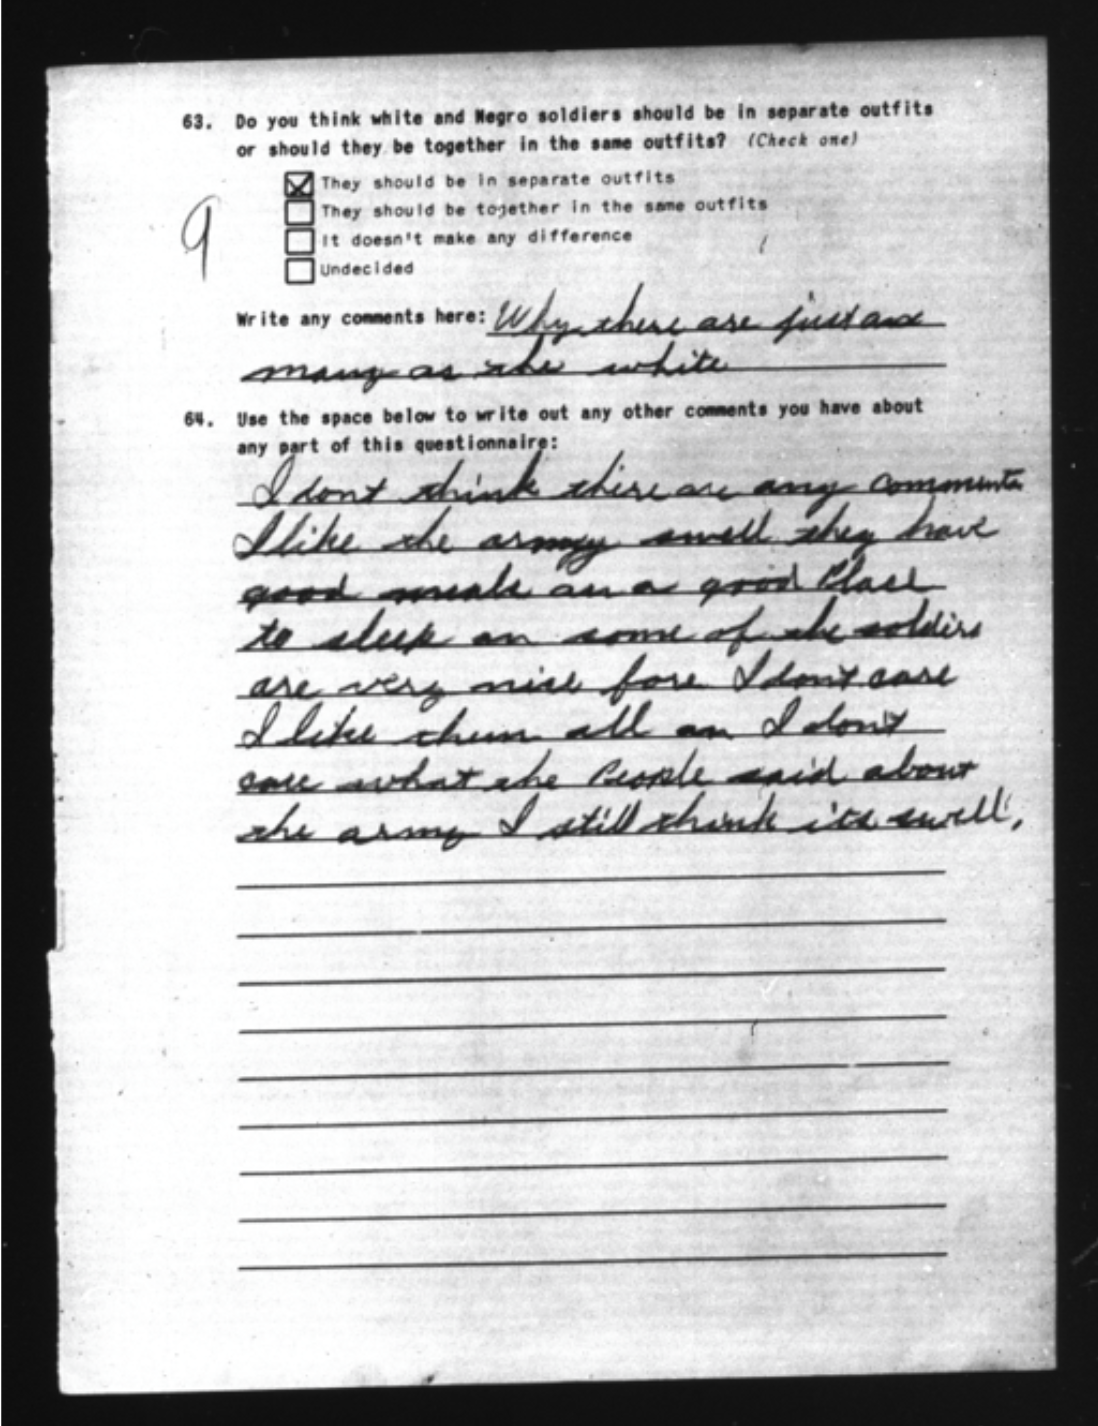 63. Do you think white and Negro soldiers should be in separate outfits
or should they be together in the same outfits? (Check one)
They should be in separate outfits
They should be together in the same outfits
It doesn't make any difference
Undecided
9
Write any comments here: Why there are just as
many as the white
64. Use the space below to write out any other comments you have about
any part of this questionnaire:
I dont think there are any comments
I like the army swell they have
good meals an a good Place
to sleep an some of the soldiers
are very nice fore I dont care
I like them all an I dont
care what the People said about
the army I still think its swell.